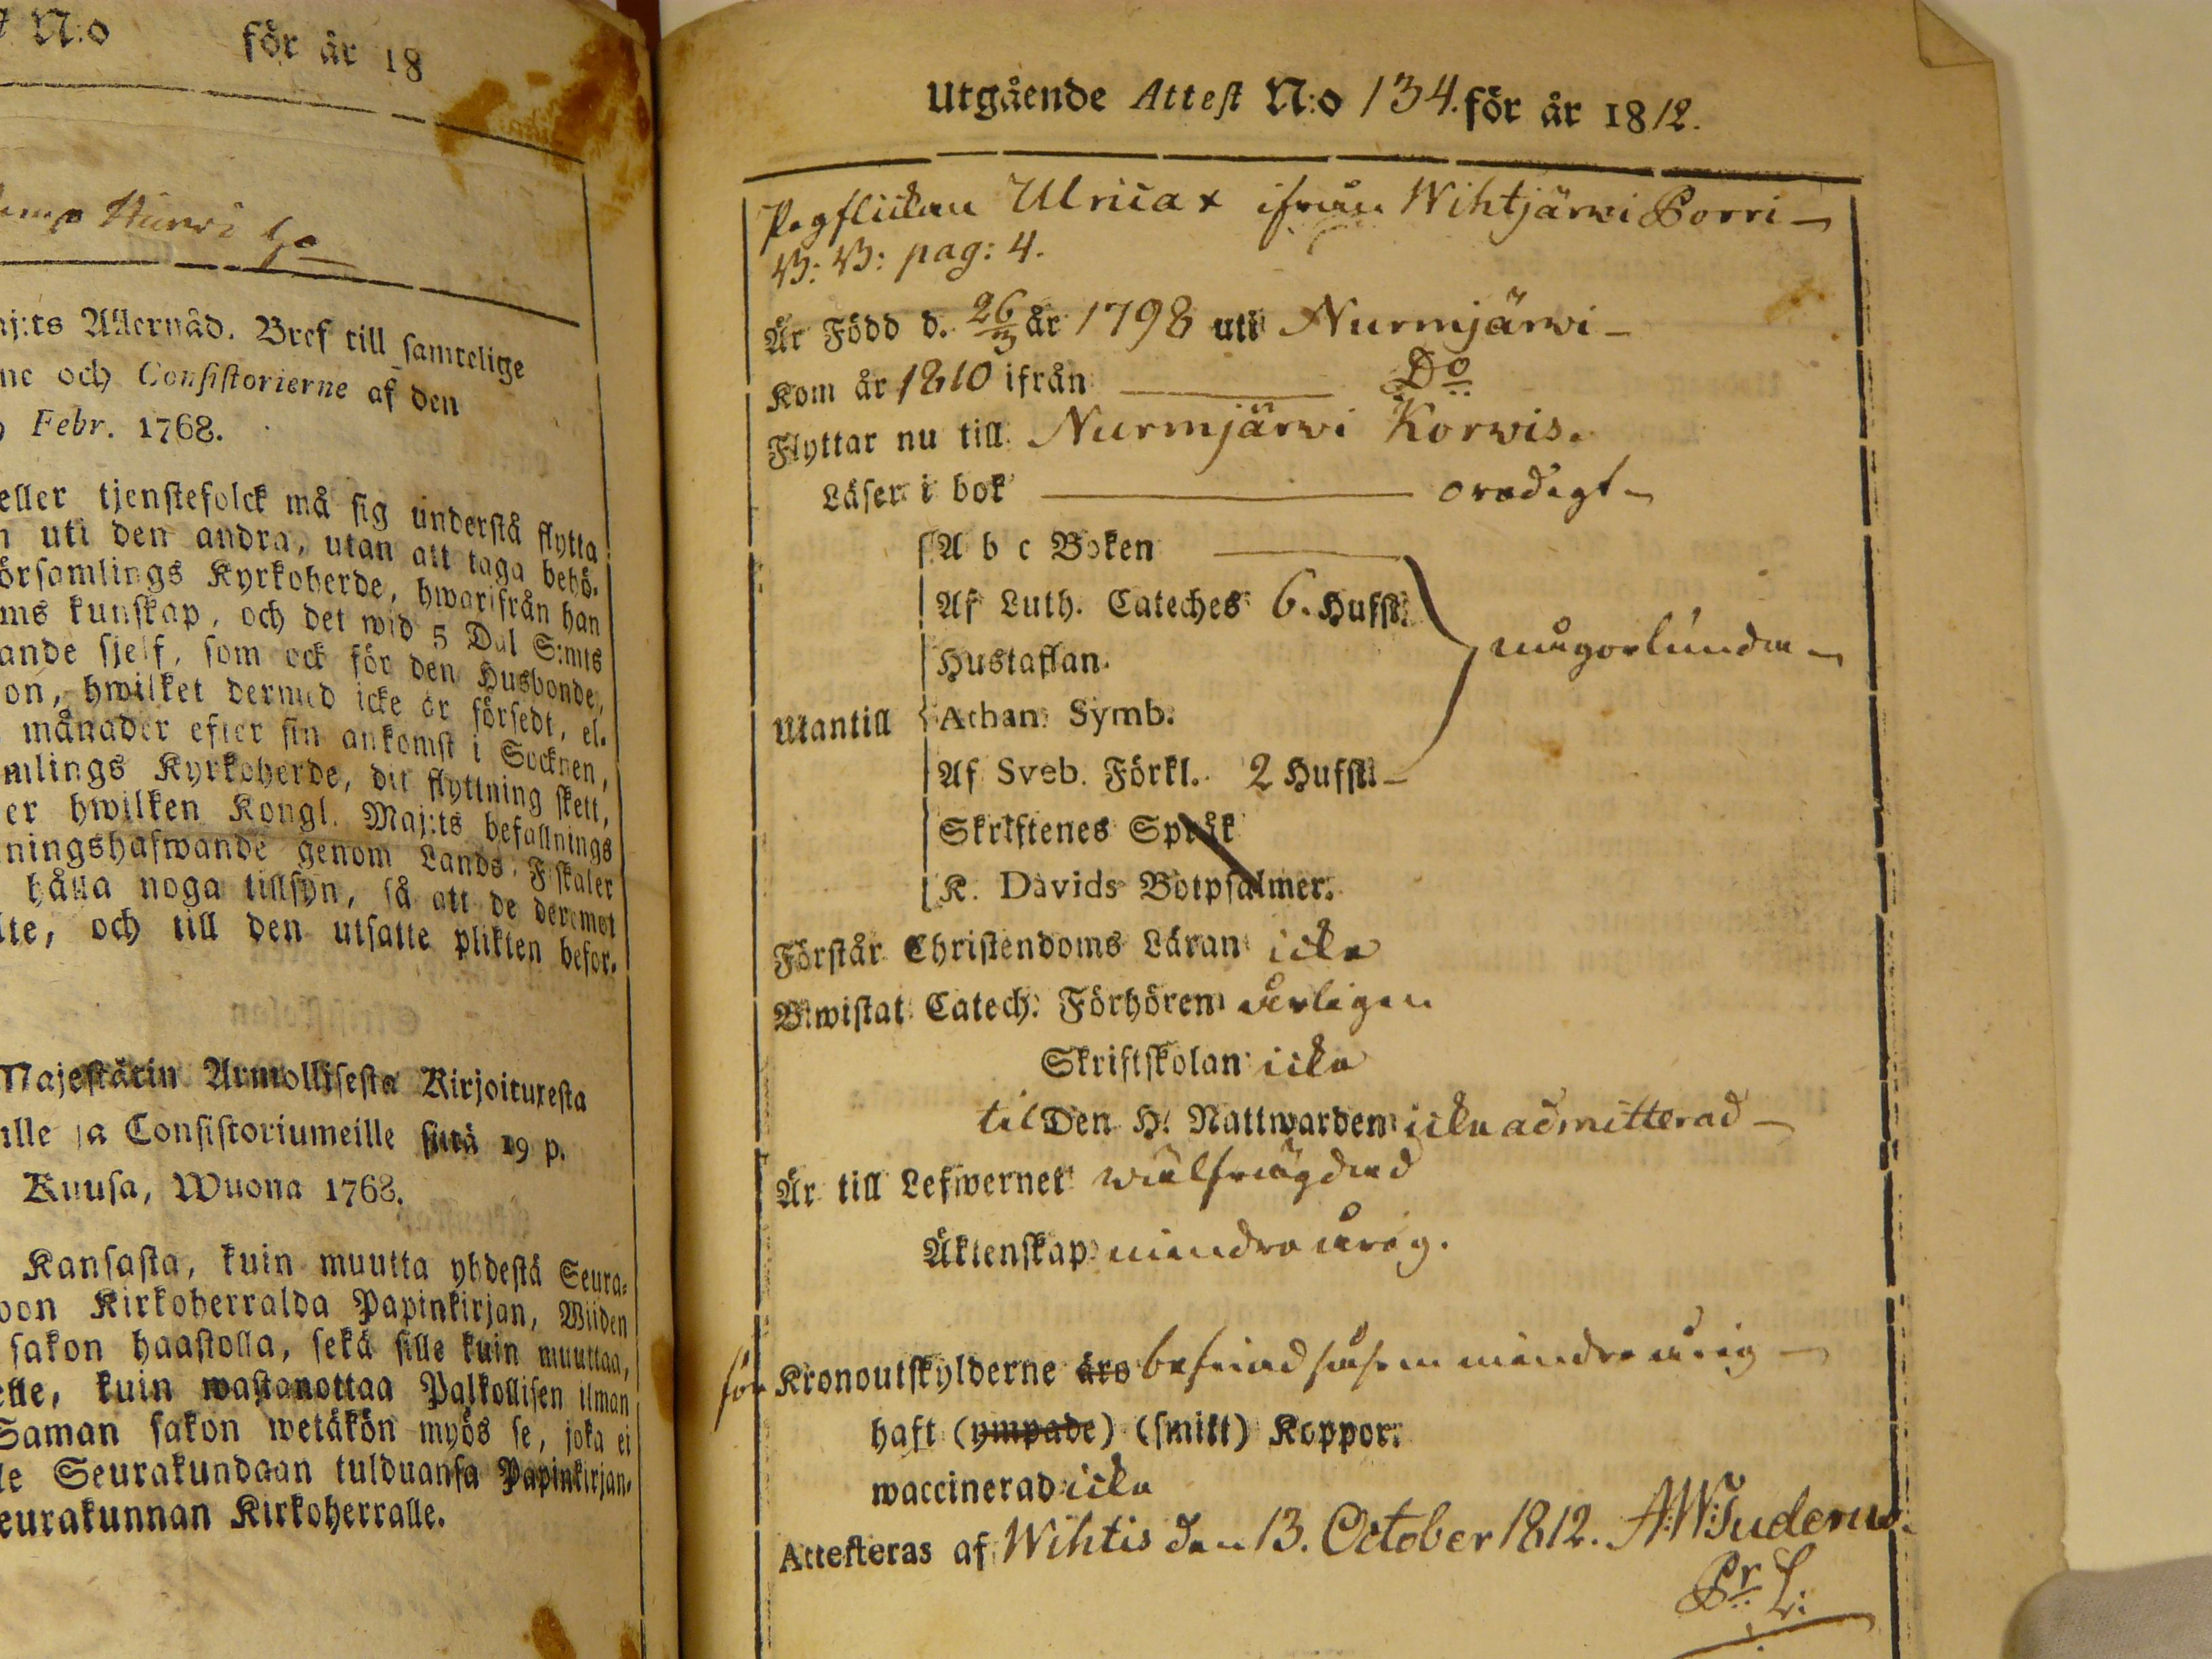 N:o för år 18
Hurri
aj:ts Allernåd. Bref till samtelige
ne och Consistorierne af den
Febr. 1768.
eller tjenstefolck må sig understå flytta
uti den andra, utan att taga behö-
örsamlings Kyrkoherde, hwarifrån han
ms kunskap, och det wid 5 Dal S:mts
ande sjelf, som ock för den Husbonde,
on, hwilket dermed icke är försedt, el-
månader efter sin ankomst i Socknen,
mlings Kyrkoherde, dit flyttning skett,
er hwilken Kongl. Maj:ts befallnings
ningshafwande genom Lands-Fiskaler
hålla noga tillsyn, så att de deremot
lte, och till den utsatte plikten befor-
Majestätin Armollisesta Kirjoituxesta
ille ja Consistoriumeille siitä 19 p.
Kuusa, Wuona 1768.
Kansasta, kuin muutta yhdestä Seura-
oon Kirkoherralda Papinkirjan, Wiiden
sakon haastolla, sekä sille kuin muuttaa,
elle, kuin wastanottaa Palkollisen ilman
Saman sakon wetäkön myös se, joka ei
le Seurakundaan tulduansa Papinkirjan-
eurakunnan Kirkoherralle.
Utgående Attest N:o 134. för år 1812.
Pigflickan Ulrica x ifrån Wihtjärwi Borri
B: B: pag: 4.
Är Född d. 26/3 år 1798 uti Nurmjärwi
Kom år 1810 ifrån Do
Flyttar nu till Nurmjärwi Korwis.
Läser i bok oredigt
A b c Boken
Af Luth. Cateches 6. Hufst:
Hustaflan. någorlunda
Utantill Athan. Symb.
Af Sveb. Förkl. 2 Hufst:
Skriftenes Språk
K. Davids Botpsalmer.
Förstår Christendoms Läran icke
Biwistat Catech. Förhören årligen
Skriftskolan icke
til Den H. Nattwarden icke admitterad
Är till Lefwernet wälfrägdad
Äktenskap mindreårig.
för Kronoutskylderne äro befriad såsom mindreårig
haft (ympade) (smitt) Koppor.
waccinerad icke
Attesteras af Wihtis den 13. October 1812. A:W:Tudenus.
Pr. L: